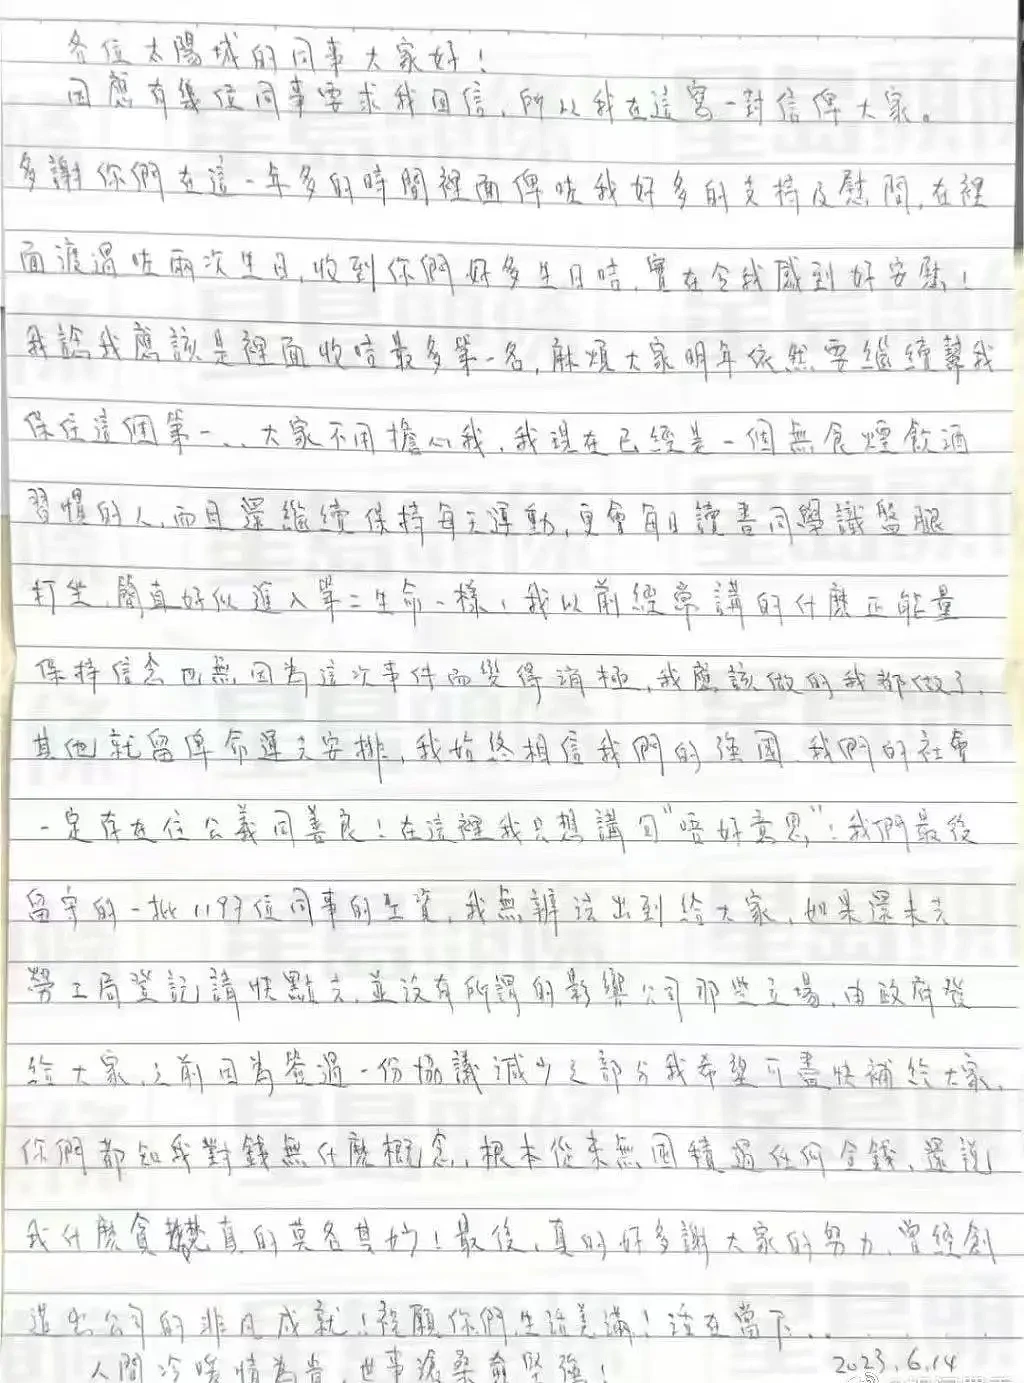 各位太陽城的同事大家好！
因應有幾位同事要求我回信，所以我在這寫一封信俾大家。
多謝你們在這一年多的時間裡面俾咗我好多的支持及慰問，在裡
面渡過咗兩次生日，收到你們好多生日咭，實在令我感到好安慰！
我諗我應該是裡面收咭最多第一名，麻煩大家明年依然要繼續幫我
保住這個第一．．大家不用擔心我，我現在已經是一個無食煙飲酒
習慣的人，而且還繼續保持每天運動，更會每日讀書同學識盤腿
打坐，簡直好似進入第二生命一樣，我以前經常講的什麼正能量
保持信念也無因為這次事件而變得消極，我應該做的我都做了，
其他就留俾命運去安排，我始終相信我們的強國 我們的社會
一定存在住公義同善良！在這裡我只想講句"唔好意思"！我們最後
留守的一批1197位同事的工資，我無辦法出到給大家，如果還未去
勞工局登記請快點去，並沒有所謂的影響公司那些立場，由政府發
給大家，之前因為簽過一份協議減少之部分我希望可盡快補給大家，
你們都知我對錢無什麼概念，根本從來無囤積過任何金錢，還說
我什麼貪婪真的莫名其妙！最後，真的好多謝大家的努力，曾經創
造出公司的非凡成就！祝願你們生活美滿！活在當下．．
人間冷暖情為貴，世事滄桑愈堅強！
2023.6.14